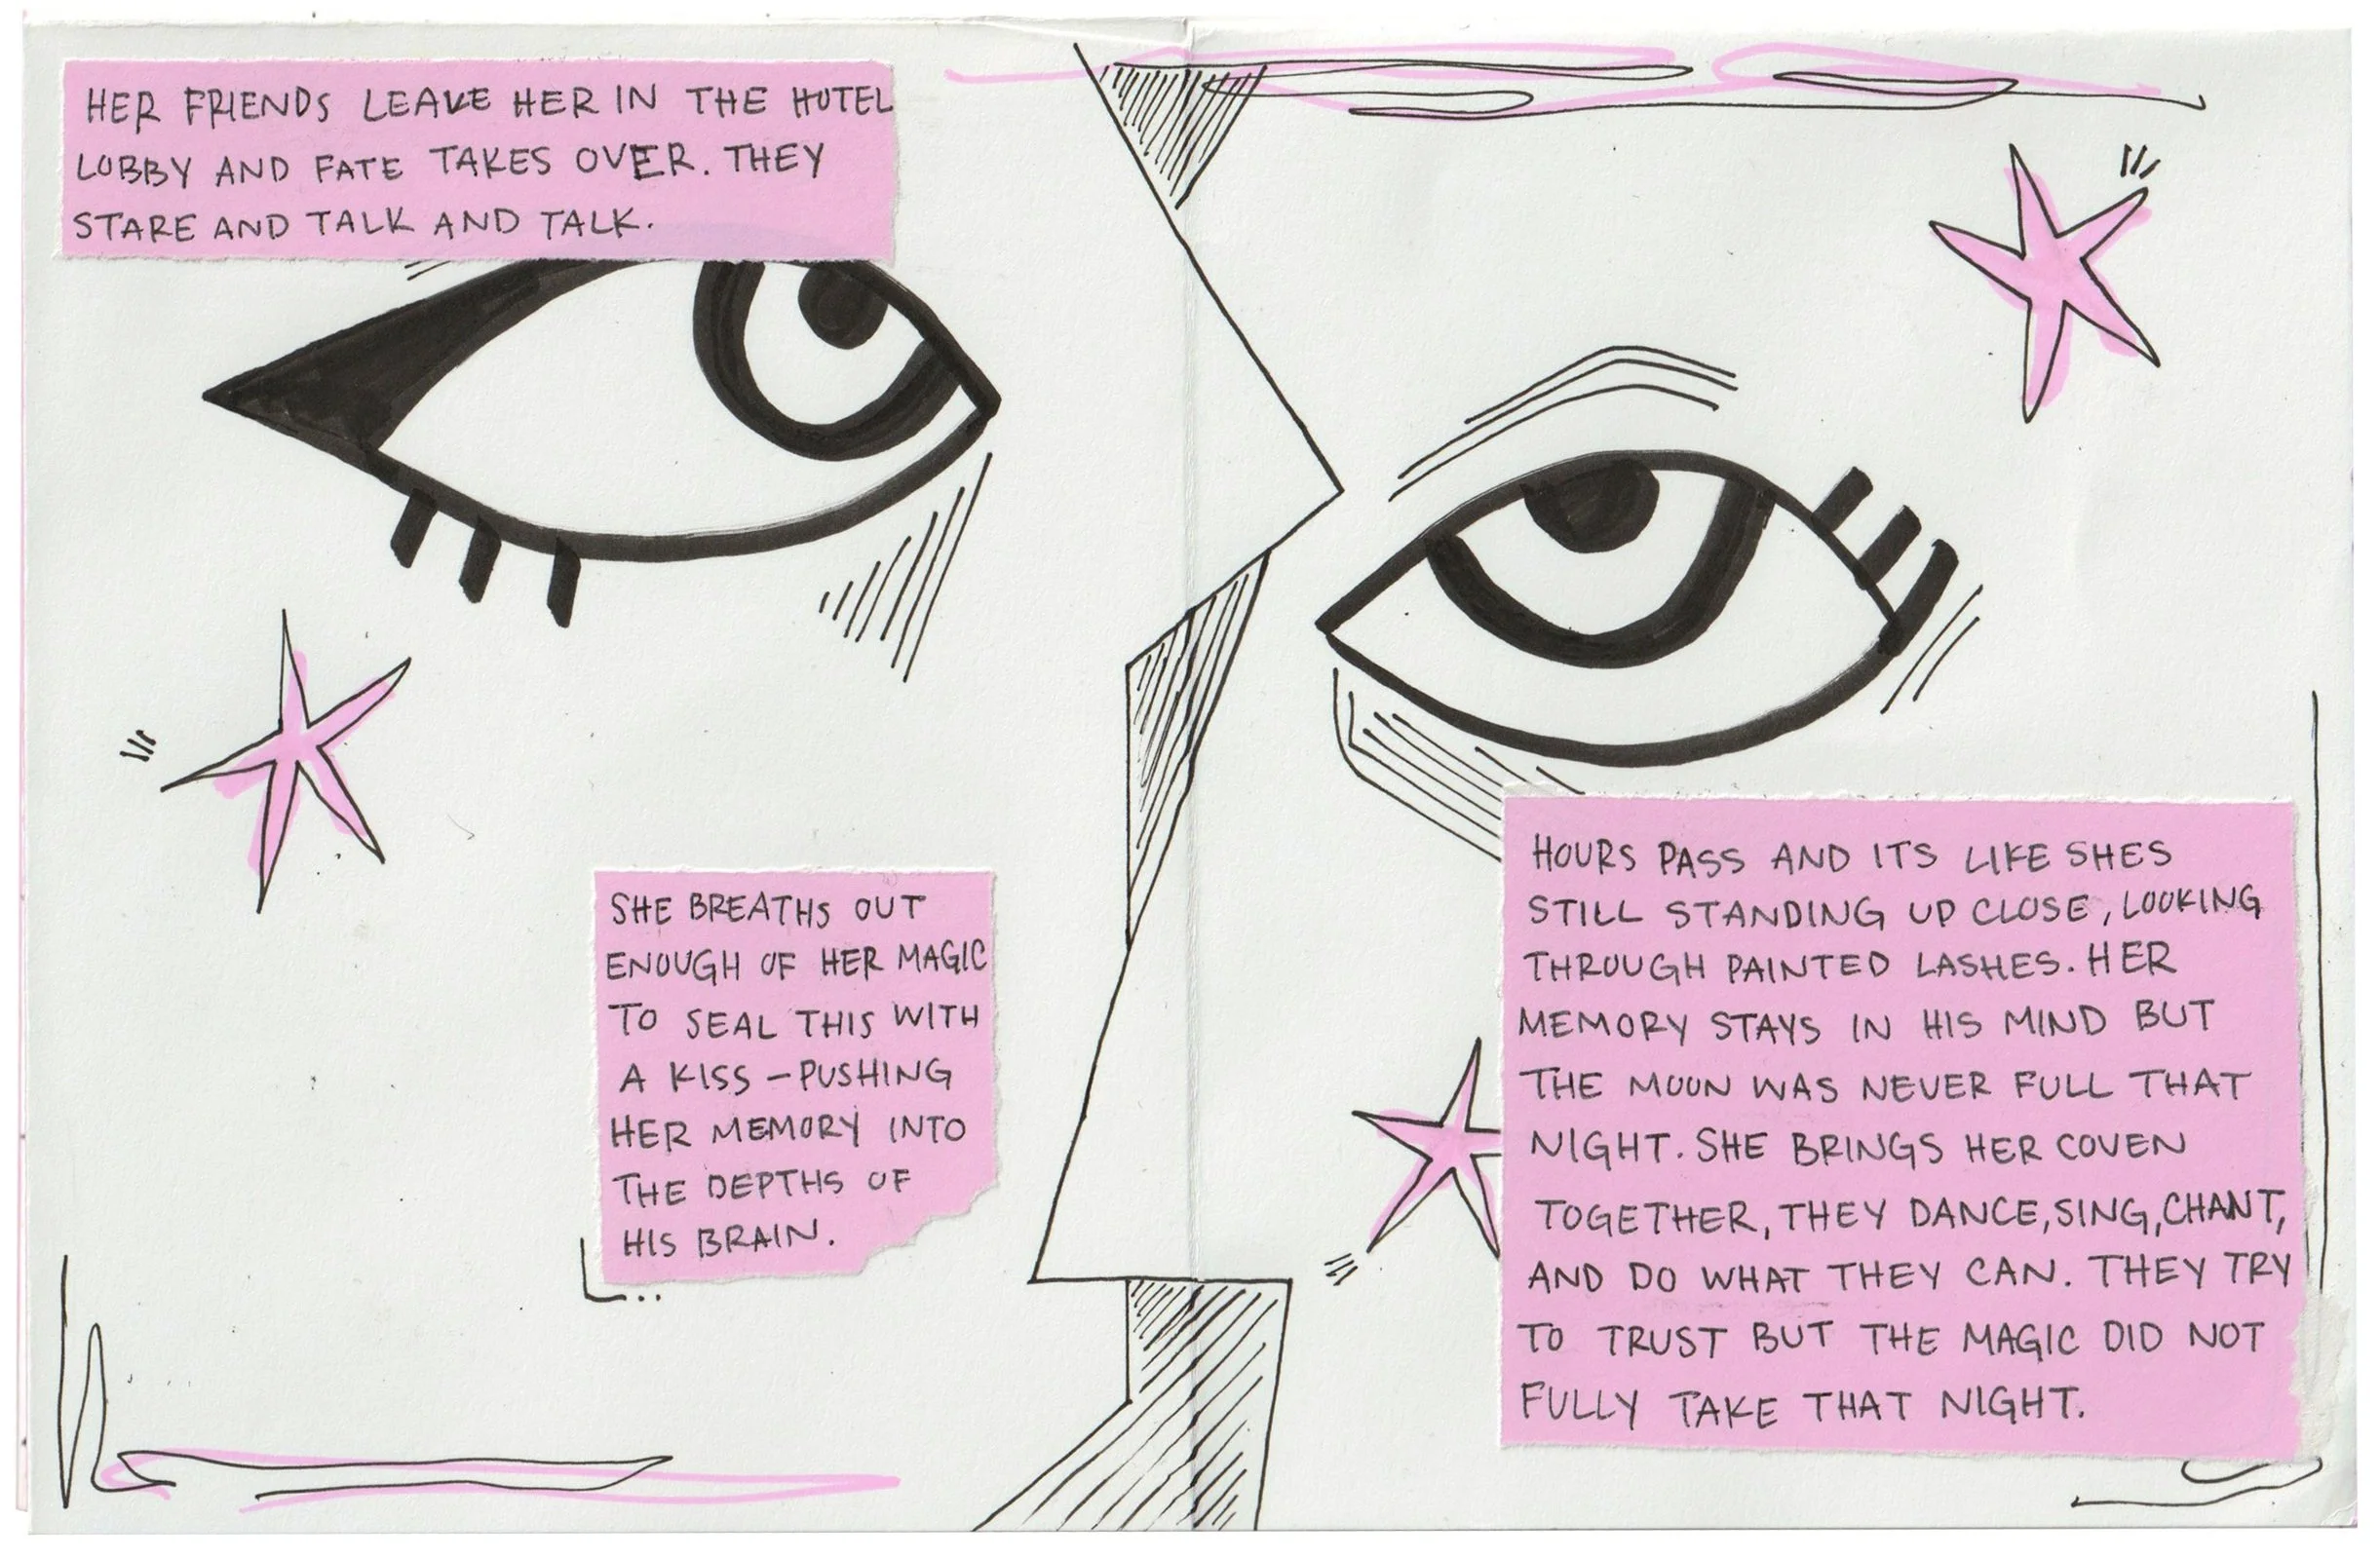 HER FRIENDS LEAVE HER IN THE HOTEL
LOBBY AND FATE TAKES OVER. THEY
STARE AND TALK AND TALK.
SHE BREATHS OUT
ENOUGH OF HER MAGIC
TO SEAL THIS WITH
A KISS – PUSHING
HER MEMORY INTO
THE DEPTHS OF
HIS BRAIN.
HOURS PASS AND ITS LIKE SHES
STILL STANDING UP CLOSE, LOOKING
THROUGH PAINTED LASHES. HER
MEMORY STAYS IN HIS MIND BUT
THE MOON WAS NEVER FULL THAT
NIGHT. SHE BRINGS HER COVEN
TOGETHER, THEY DANCE, SING, CHANT,
AND DO WHAT THEY CAN. THEY TRY
TO TRUST BUT THE MAGIC DID NOT
FULLY TAKE THAT NIGHT.